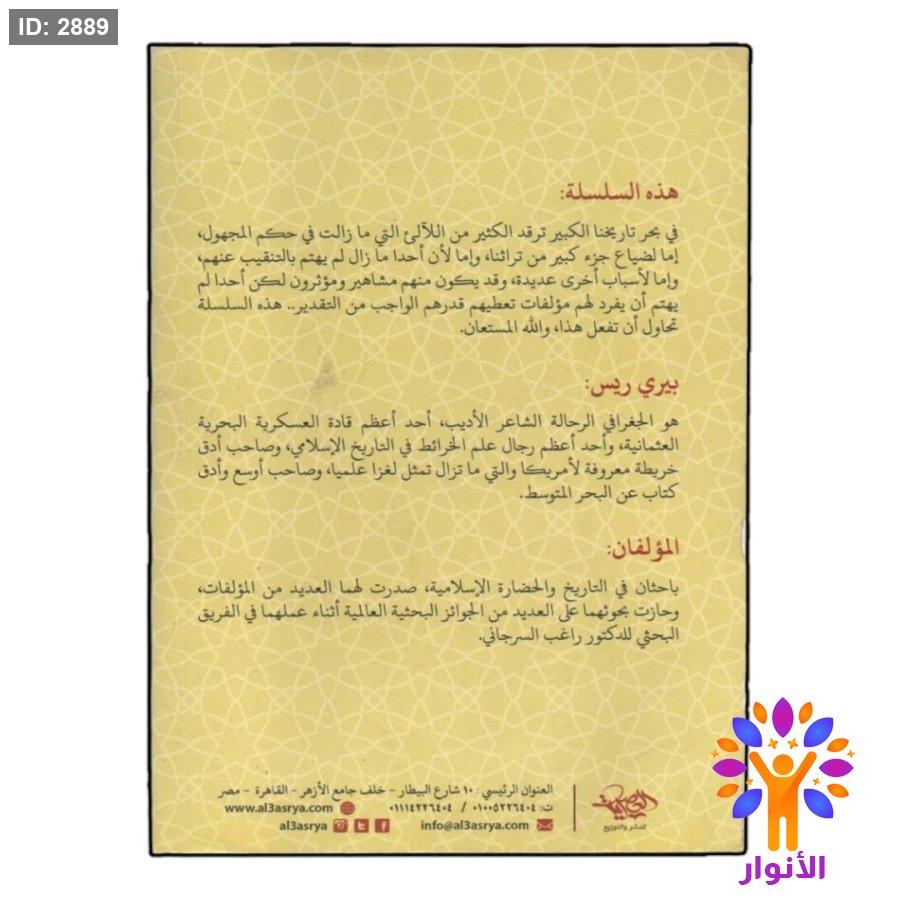 ID: 2889
هذه السلسلة:
في بحر تاريخنا الكبير ترقد الكثير من اللآلئ التي ما زالت في حكم المجهول،
إما لضياع جزء كبير من تراثنا، وإما لأن أحدا ما زال لم يهتم بالتنقيب عنهم،
وإما لأسباب أخرى عديدة، وقد يكون منهم مشاهير ومؤثرون لكن أحدا لم
يهتم أن يفرد لهم مؤلفات تعطيهم قدرهم الواجب من التقدير.. هذه السلسلة
تحاول أن تفعل هذا، والله المستعان.
بيري ريس:
هو الجغرافي الرحالة الشاعر الأديب، أحد أعظم قادة العسكرية البحرية
العثمانية، وأحد أعظم رجال علم الخرائط في التاريخ الإسلامي، وصاحب أدق
خريطة معروفة لأمريكا والتي ما تزال تمثل لغزا علميا، وصاحب أوسع وأدق
كتاب عن البحر المتوسط.
المؤلفان:
باحثان في التاريخ والحضارة الإسلامية، صدرت لهما العديد من المؤلفات،
وحازت بحوثهما على العديد من الجوائز البحثية العالمية أثناء عملهما في الفريق
البحثي للدكتور راغب السرجاني.
العصرية
للنشر والتوزيع
العنوان الرئيسي: ١٠ شارع البيطار - خلف جامع الأزهر - القاهرة - مصر
ت: ٠١٠٠٥٢٢٦٤٠٤ / ٠١١١٤٢٢٦٤٠٤ www.al3asrya.com
info@al3asrya.com al3asrya
الأنوار